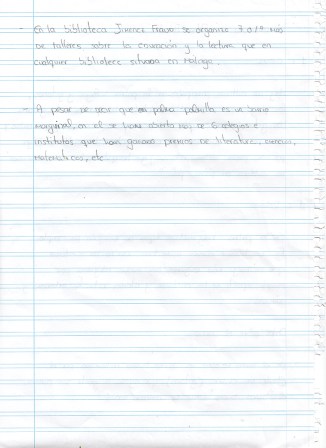 - En la biblioteca Jimenez Fraud se organiza 30% más
de talleres sobre la educación y la lectura que en
cualquier biblioteca situada en Málaga.
- A pesar de decir que en palma palmilla es un barrio
marginal, en el se han abierto más de 5 colegios e
institutos que han ganado premios de literatura, ciencias,
matemáticas, etc.